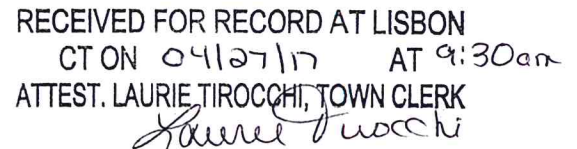 RECEIVED FOR RECORD AT LISBON
CT ON 04/27/17 AT 9:30am
ATTEST. LAURIE TIROCCHI, TOWN CLERK
Laurie Tirocchi